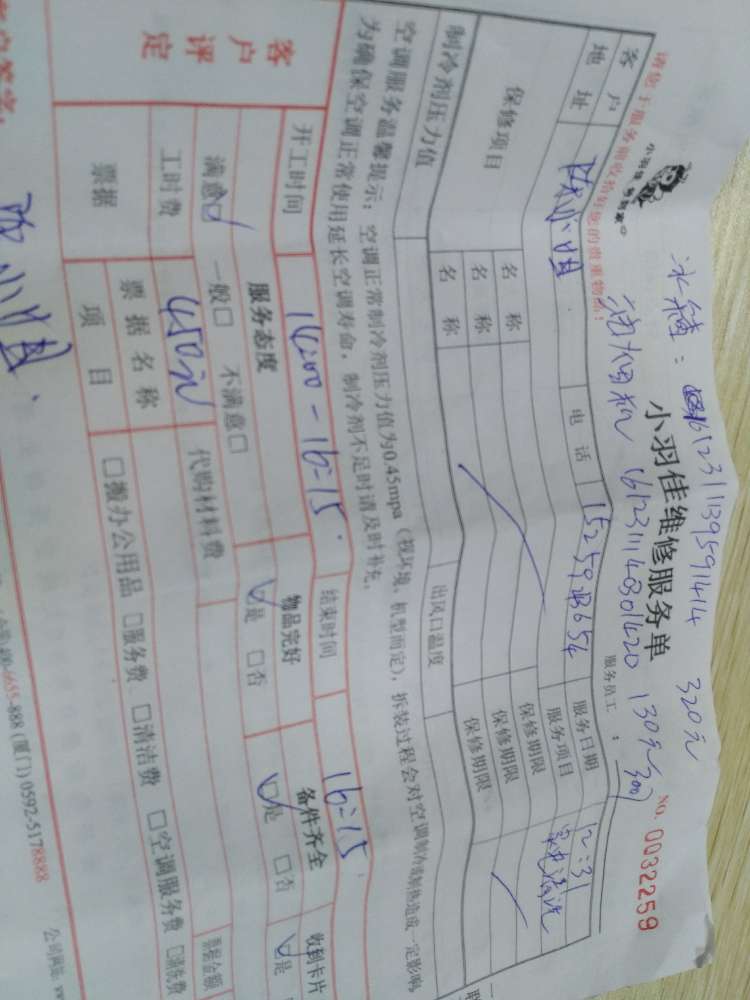 冰箱：1612311139591414 320元
洗衣机 1612311140301420 130元/300
小羽佳维修服务单
NO. 0032259
请您于服务前收拾好您的贵重物品！
服务员工：
客户
地址
陈小姐
电话
服务日期
12:31
服务项目
家电清洗
保修项目
名称
保修期限
名称
保修期限
名称
保修期限
制冷剂压力值
出风口温度
空调服务温馨提示：空调正常制冷剂压力值为0.45mpa（视环境、机型而定），拆装过程会对空调制冷制热造成一定影响
为确保空调正常使用延长空调寿命，制冷剂不足时请及时补充。
客户评定
开工时间
14:00-16:15
结束时间
16:15
服务态度
物品完好
备件齐全
收到卡片
满意☑ 一般□ 不满意□
☑是 □否
☑是 □否
☑是
工时费
450元
代购材料费
票据
票据名称
票据金额
项目
□搬办公用品 □服务费 □清洁费 □空调服务费 □清洗费
陈小姐
-6655-888 (厦门) 0592-5178888
公司网站：